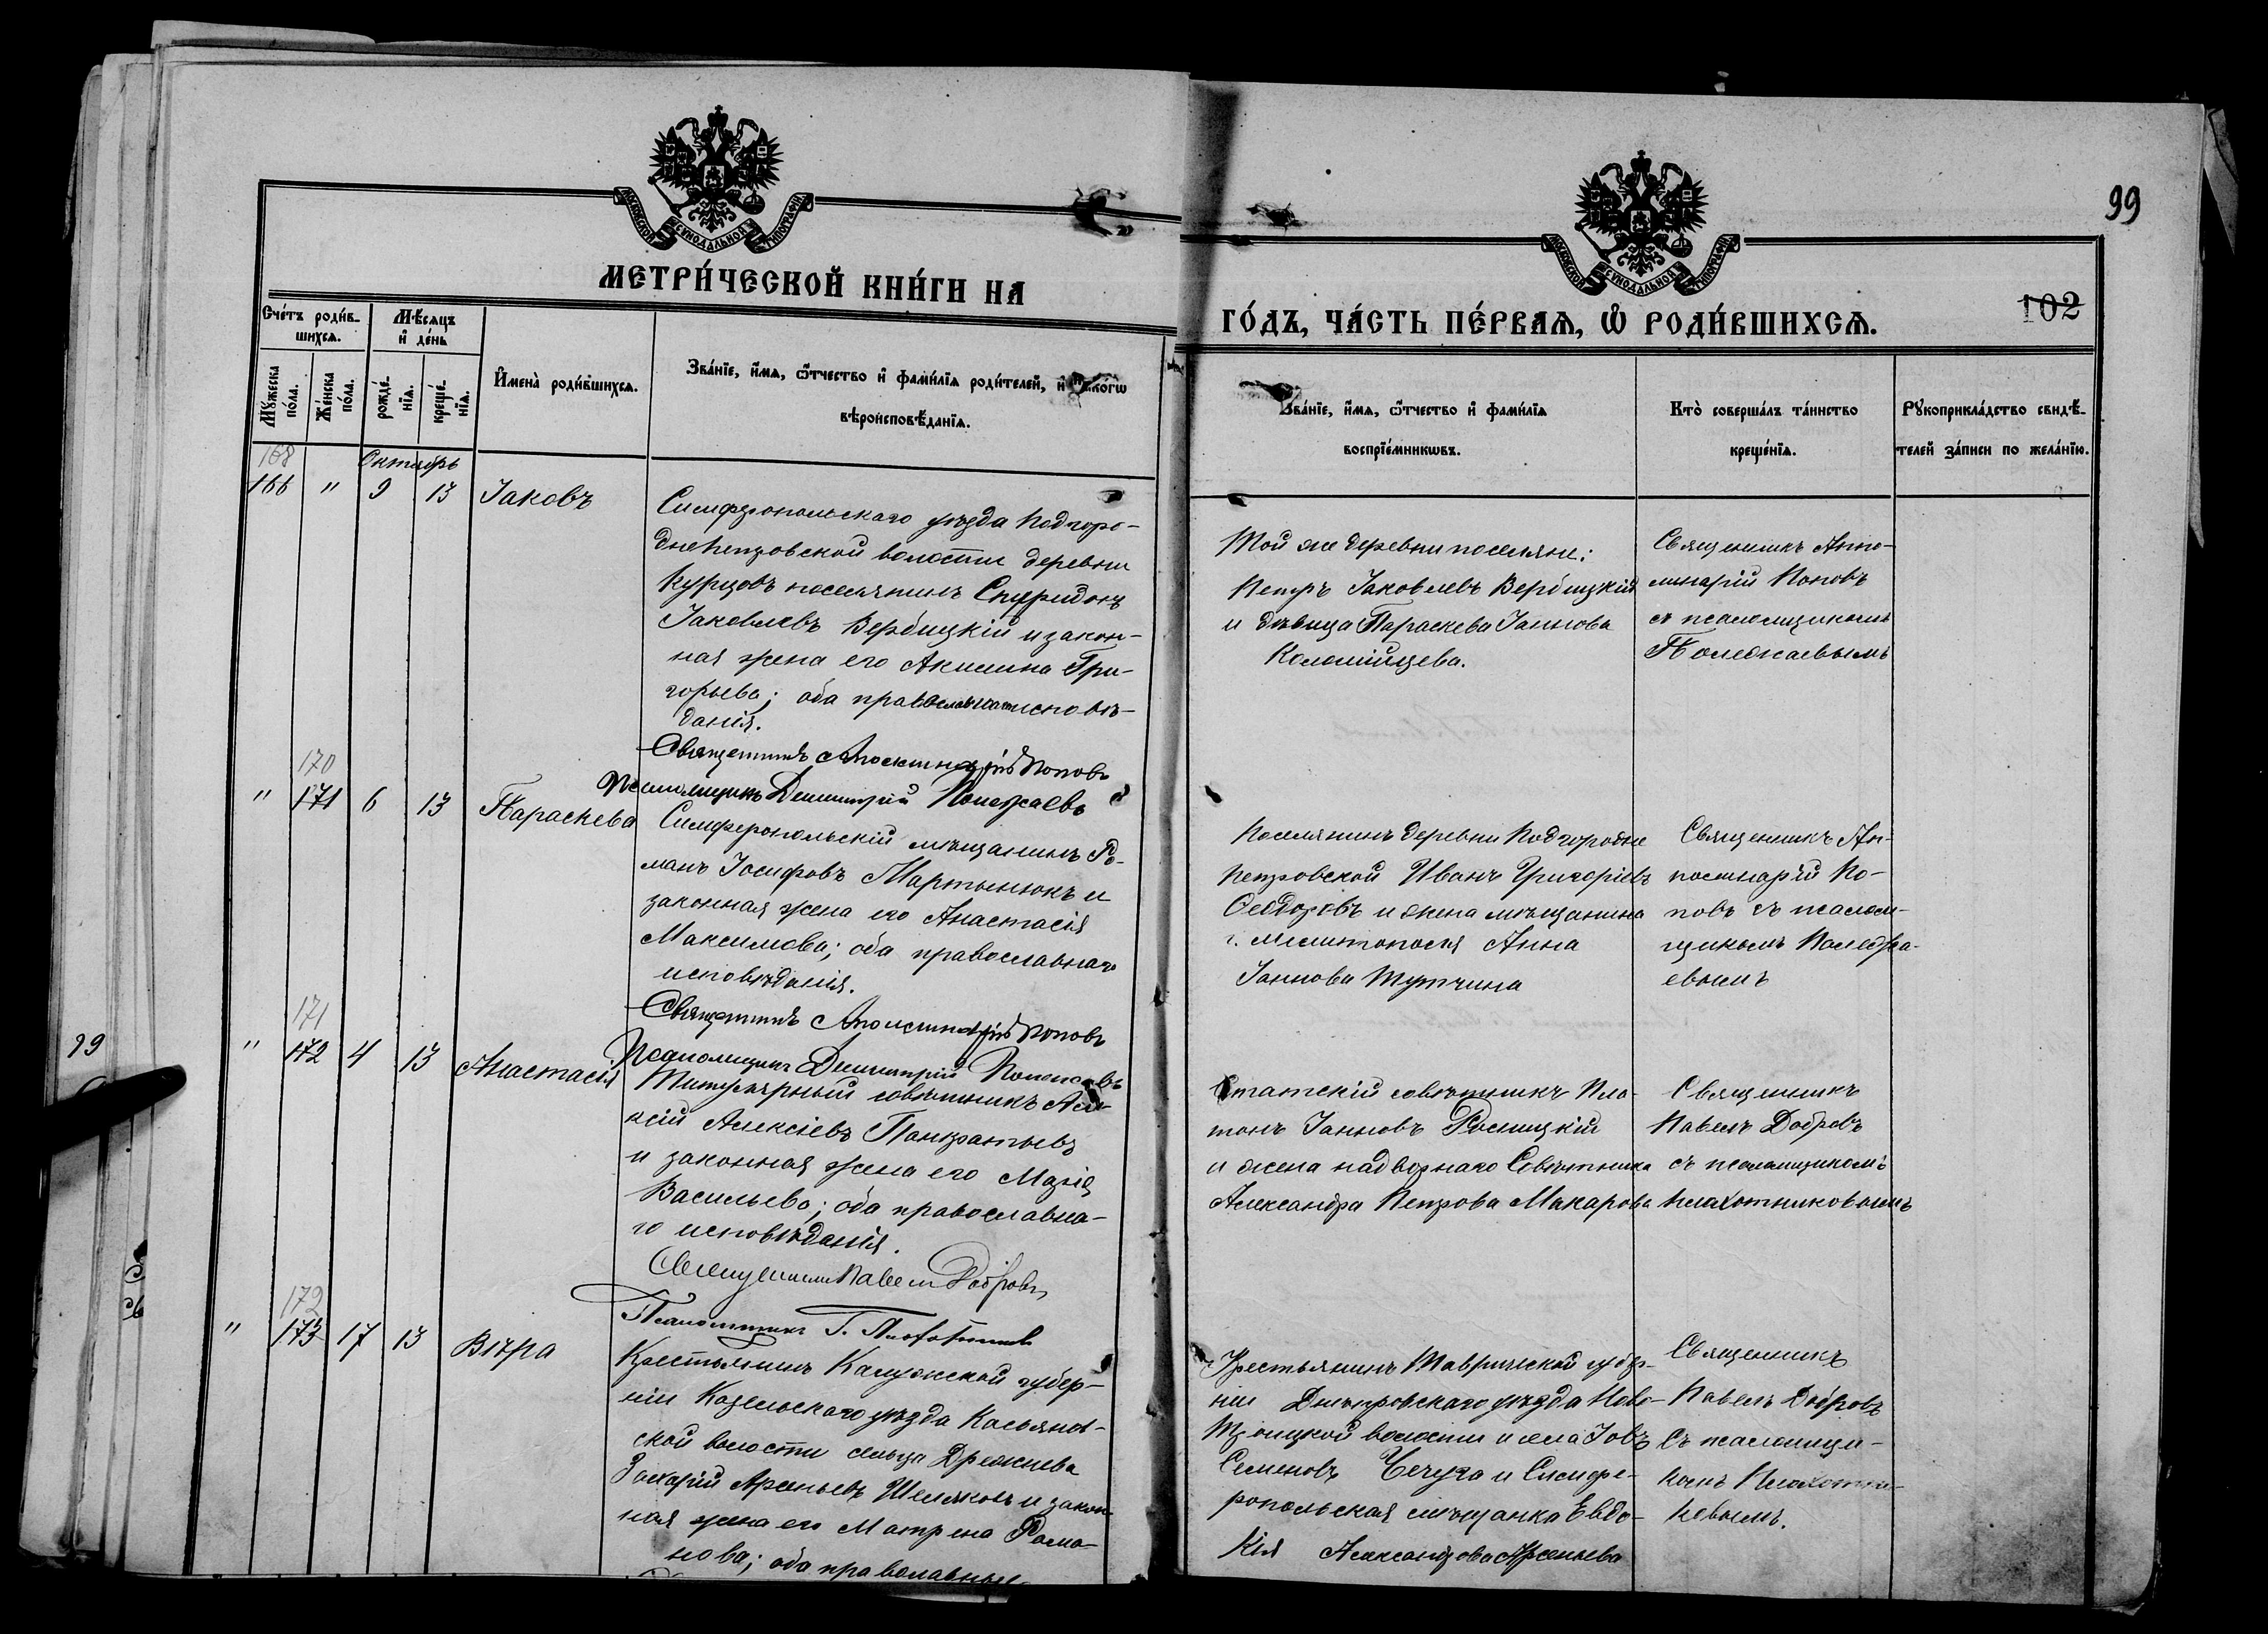 99
МЕТРИ́ЧЕСКОЙ КНИ́ГИ НА
ГО́ДЪ, ЧА́СТЬ ПЕ́РВАѦ, Ѡ РОДИ́ВШИХСѦ.
102
Сче́тъ роди́в-
шихсѧ.
Мѣ́сѧцъ
и҆ де́нь
Му́жеска
по́ла.
Же́нска
по́ла.
рожде́-
нїѧ.
креще́-
нїѧ.
И҆мена̀ роди́вшихсѧ.
Зва́нїе, и҆́мѧ, ѻ҆́тчество и҆ фами́лїѧ роди́телей, и҆ како́гѡ
вѣроисповѣ́данїѧ.
Зва́нїе, и҆́мѧ, ѻ҆́тчество и҆ фами́лїѧ
воспрїе́мникѡвъ.
Кто̀ соверша́лъ та́инство
креще́нїѧ.
Рꙋкоприкла́дство свидѣ́-
телей за́писи по жела́нїю.
168
Октябрь
166 " 9 13 Іаковъ
Симферопольскаго уѣзда Подгоро-
днеПетровской волости деревни
Курцовъ поселянинъ Спуридонъ
Іаковлевъ Вербицкій и закон-
ная жена его Акилина Гри-
горьева; оба православнаго исповѣ-
данія.
Священникъ Аполлинарій Поповъ
Псаломщикъ Димитрій Полежаевъ
Той же деревни поселяне:
Петръ Іаковлевъ Вербицкій
и дѣвица Параскева Іаннова
Коломійцева.
Священникъ Аппо-
линарій Поповъ
съ псаломщикомъ
Полежаевымъ
170
" 171 6 13 Параскева
Симферопольскій мѣщанинъ Ро-
манъ Іосифовъ Мартынюкъ и
законная жена его Анастасія
Максимова; оба православнаго
исповѣданія.
Священникъ Аполлинарій Поповъ
Псаломщикъ Димитрій Полежаевъ
Поселянинъ деревни Подгородне
Петровской Иванъ Григоріевъ
Ѳеодоровъ и жена мѣщанина
г. Мелитополя Анна
Іаннова Тутчина
Священникъ Ап-
полинарій По-
повъ съ псалом-
щикомъ Полежа-
евымъ
99
171
" 172 4 13 Анастасія
Титулярный совѣтникъ Але-
ксій Алексіевъ Панкратьевъ
и законная жена его Марія
Васильева; оба православна-
го исповѣданія.
Священникъ Павелъ Добровъ
Псаломщикъ Г. Плахотниковъ
Статскій совѣтникъ Пла-
тонъ Іанновъ Росницкій
и жена надворнаго Совѣтника
Александра Петрова Макарова
Священникъ
Павелъ Добровъ
съ псаломщикомъ
Плахотниковымъ
172
" 173 17 13 Вѣра
Крестьянинъ Калужской губер-
ніи Козельскаго уѣзда Касьянов-
ской волости сельца Дрежнева
Захарій Арсеньевъ Шеляковъ и закон-
ная жена его Матрена Рома-
нова; оба православные
Крестьянинъ Таврической губер-
ніи Днѣпровскаго уѣзда Ново-
Троицкой волости и села Іовъ
Семеновъ Чечуга и Симфе-
ропольская мѣщанка Евдо-
кія Александрова Арсеньева
Священникъ
Павелъ Добровъ
Съ псаломщи-
комъ Плахотни-
ковымъ.